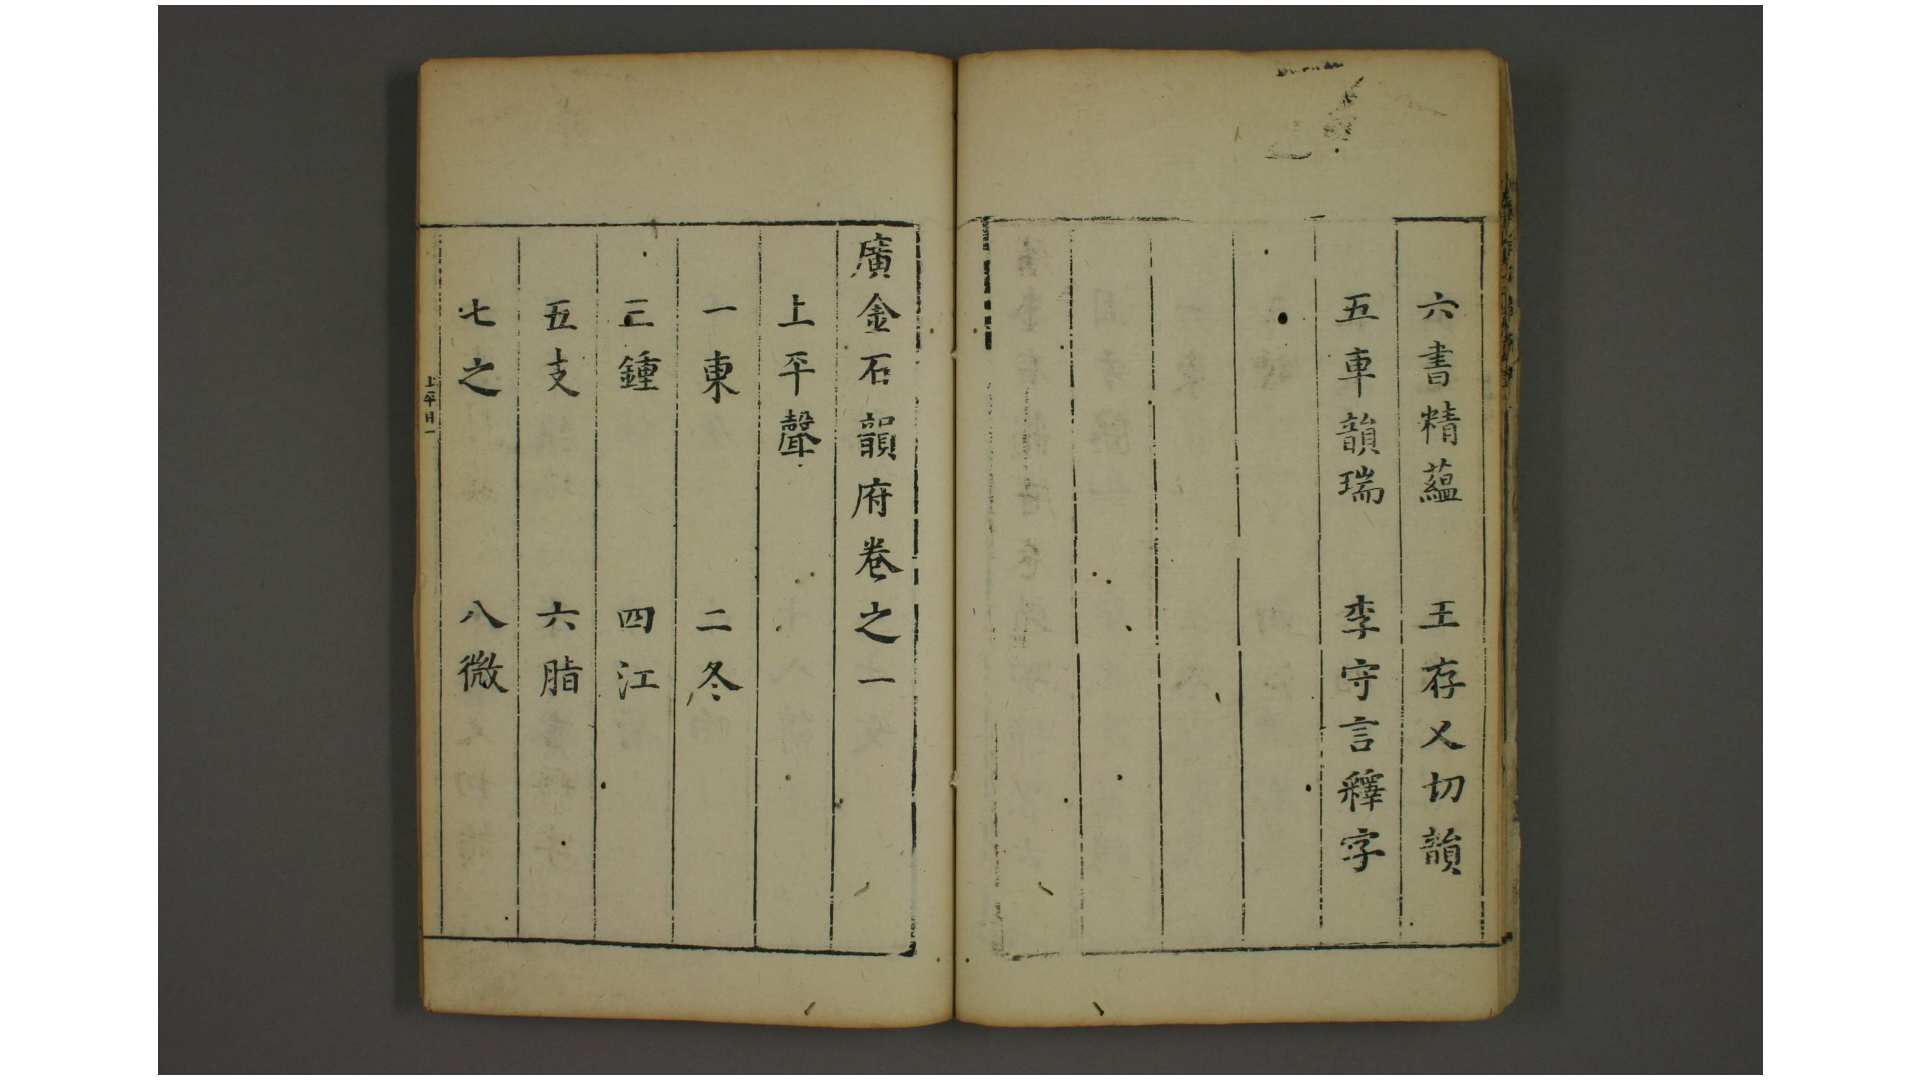 六書精蘊　王存乂切韻
五車韻瑞　李守言釋字
廣金石韻府卷之一
上平聲
一東　二冬
三鍾　四江
五支　六脂
七之　八微
上平目一